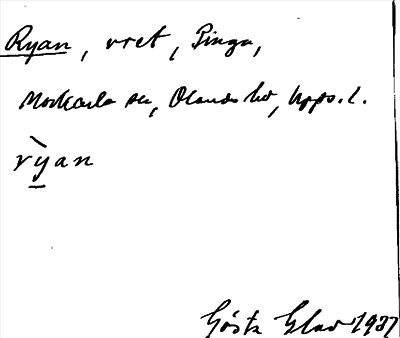 Ryan, vret, Pinga,
Morkarla sn, Olands hd, Upps. l.
rỳan
Gösta Glav 1937